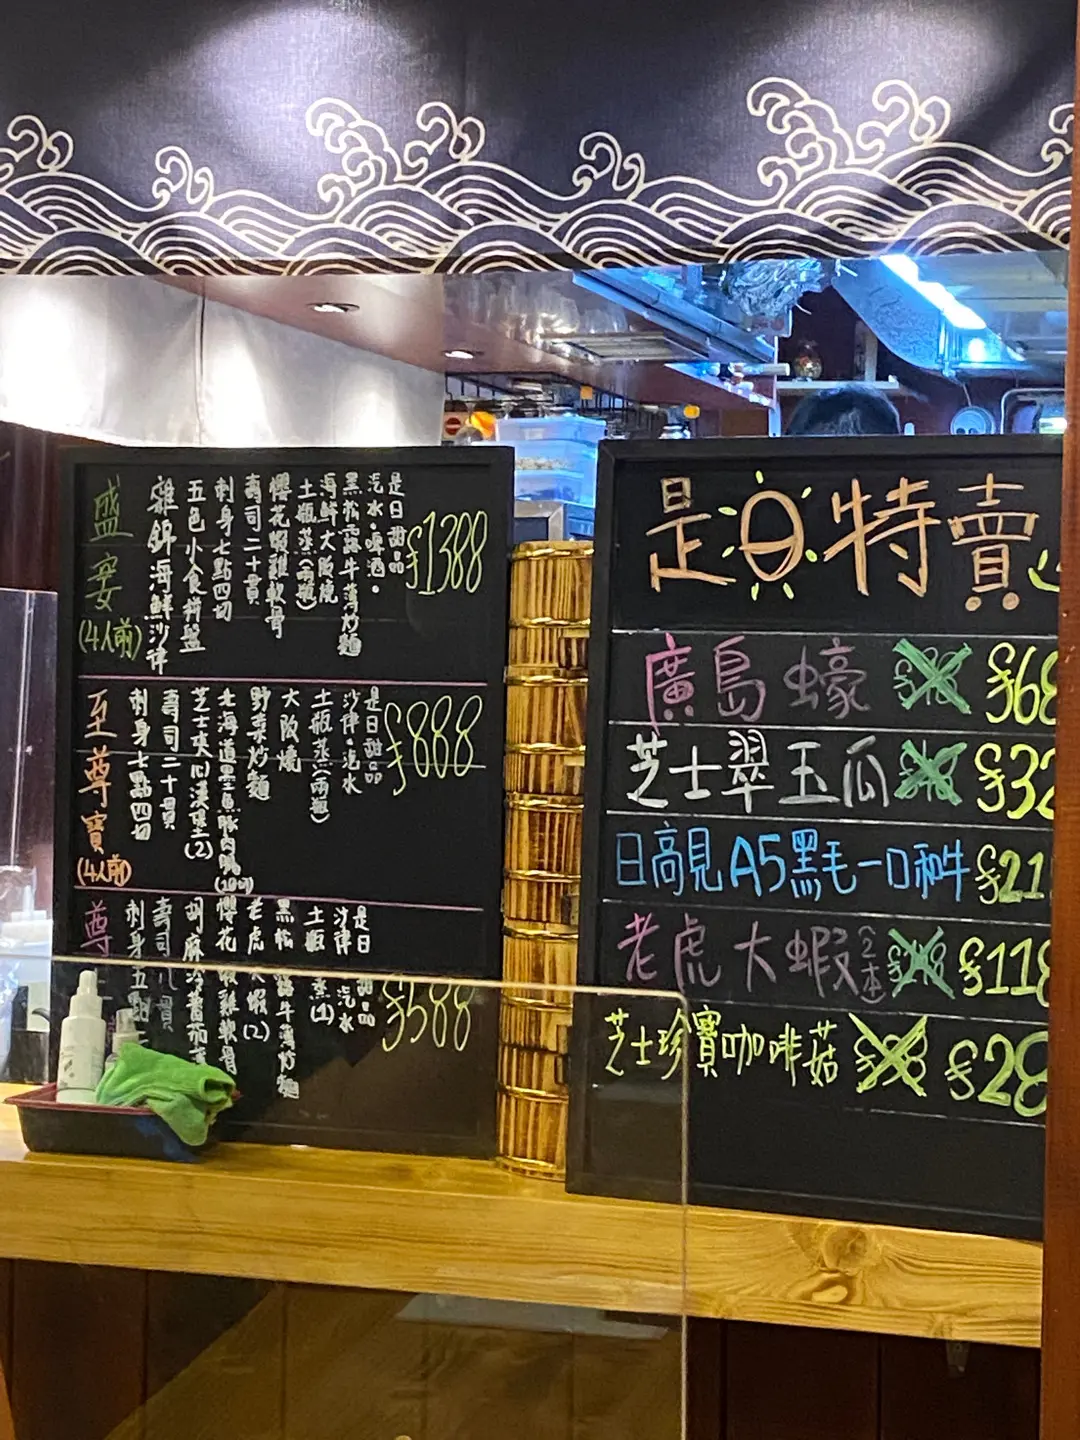 盛宴
(4人前)
雜錦海鮮沙律
五色小食拼盤
刺身七點四切
壽司二十貫
櫻花蝦雞軟骨
土瓶蒸(兩瓶)
海鮮大阪燒
黑松露牛薄炒麵
汽水·啤酒·
是日甜品
$1388
至尊寶
(4人前)
刺身七點四切
壽司二十貫
芝士夾心漢堡(2)
北海道黑豚肉腸
野菜炒麵
大阪燒
土瓶蒸(兩瓶)
沙律·汽水
是日甜品
$888
尊
刺身五點
壽司八貫
胡麻冷蕃茄
櫻花蝦雞軟骨
老虎大蝦(2)
黑松露牛薄炒麵
土瓶蒸(1)
沙律 汽水
是日甜品
$588
是日特賣
廣島蠔 $68
芝士翠玉瓜 $32
日高見A5黑毛一口和牛 $21
老虎大蝦(2本) $118
芝士珍寶咖啡菇 $28